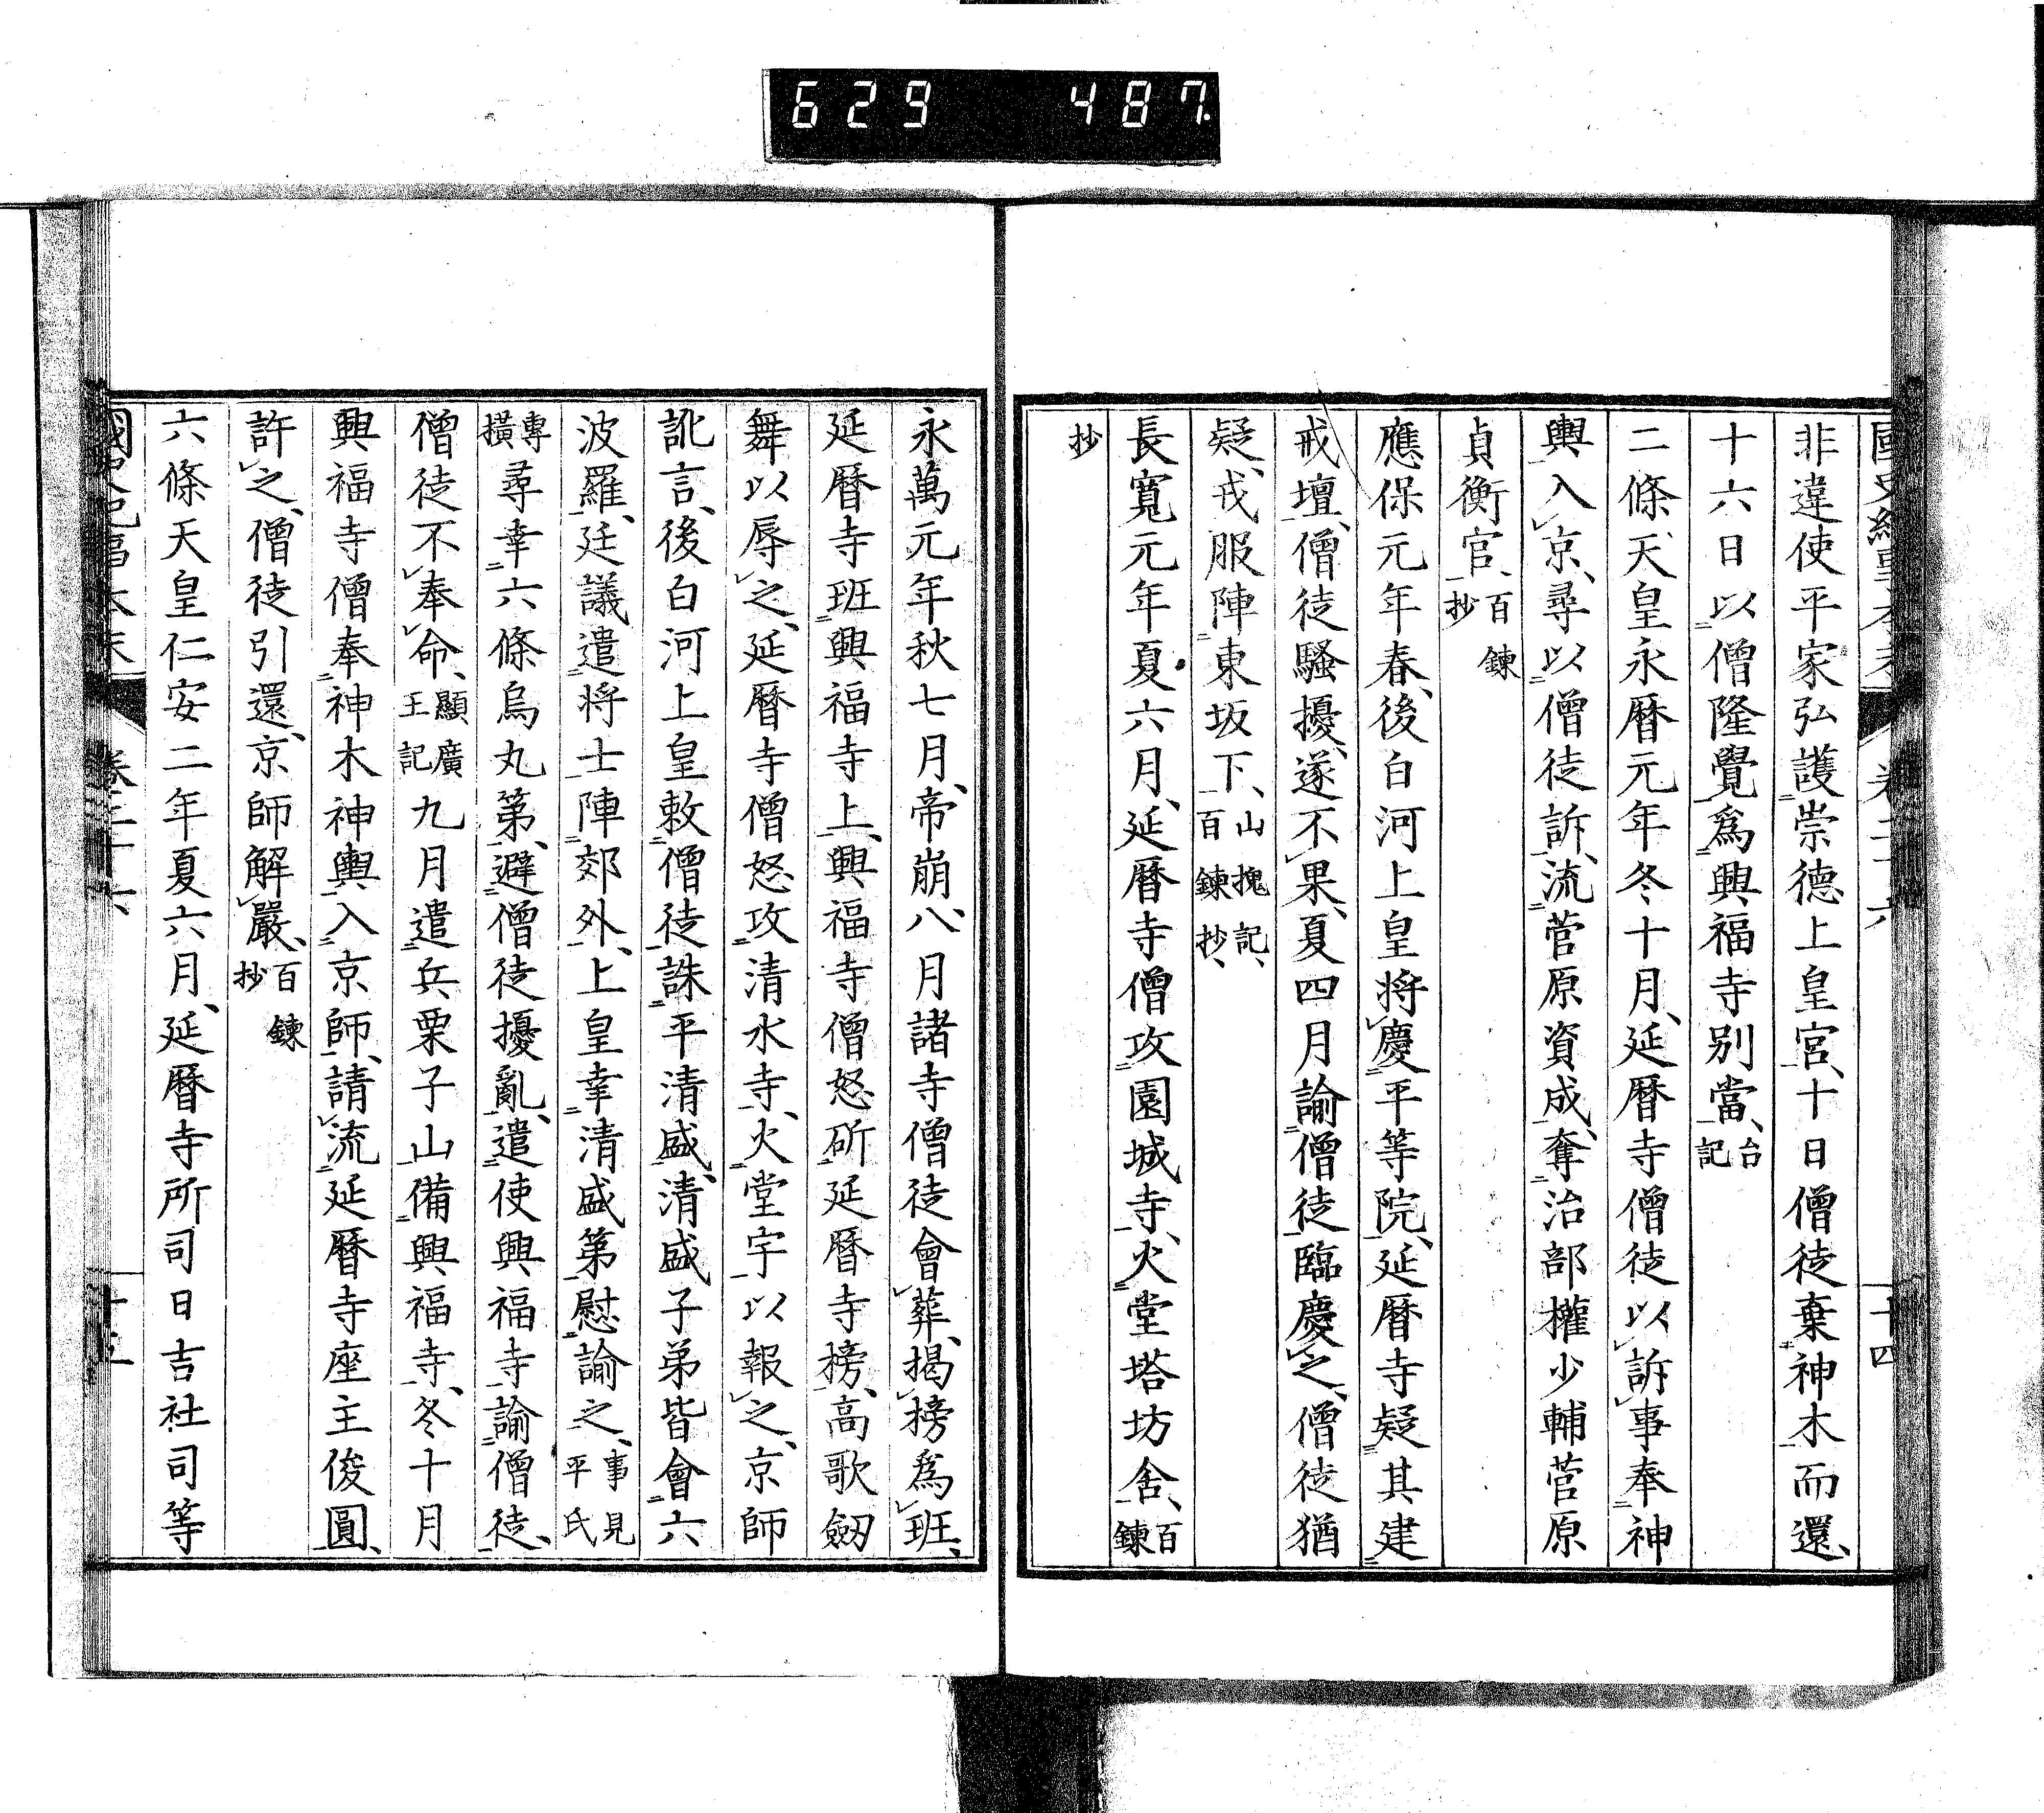 629 487.
非違使平家弘護崇德上皇宮、十日僧徒棄神木而還、
十六日以僧隆覺爲興福寺別當、台記
二條天皇永曆元年冬十月、延曆寺僧徒以訴事奉神
輿入京、尋以僧徒訴、流菅原資成、奪治部權少輔菅原
貞衡官、百鍊抄
應保元年春、後白河上皇將慶平等院、延曆寺疑其建
戒壇、僧徒騷擾、遂不果、夏四月諭僧徒臨慶之、僧徒猶
疑、戎服陣東坂下、山槐記、百鍊抄、
長寬元年夏六月、延曆寺僧攻園城寺、火堂塔坊舍、百鍊
抄
永萬元年秋七月、帝崩、八月諸寺僧徒會葬、揭榜爲班、
延曆寺班興福寺上、興福寺僧怒斫延曆寺榜、高歌劒
舞以辱之、延曆寺僧怒攻清水寺、火堂宇以報之、京師
訛言、後白河上皇敕僧徒誅平清盛、清盛子弟皆會六
波羅、廷議遣將士陣郊外、上皇幸清盛第慰諭之、事見平氏
專橫尋幸六條烏丸第、避僧徒擾亂、遣使興福寺諭僧徒、
僧徒不奉命、顯廣王記九月遣兵栗子山備興福寺、冬十月
興福寺僧奉神木神輿入京師、請流延曆寺座主俊圓、
許之、僧徒引還、京師解嚴、百鍊抄
六條天皇仁安二年夏六月、延曆寺所司日吉社司等